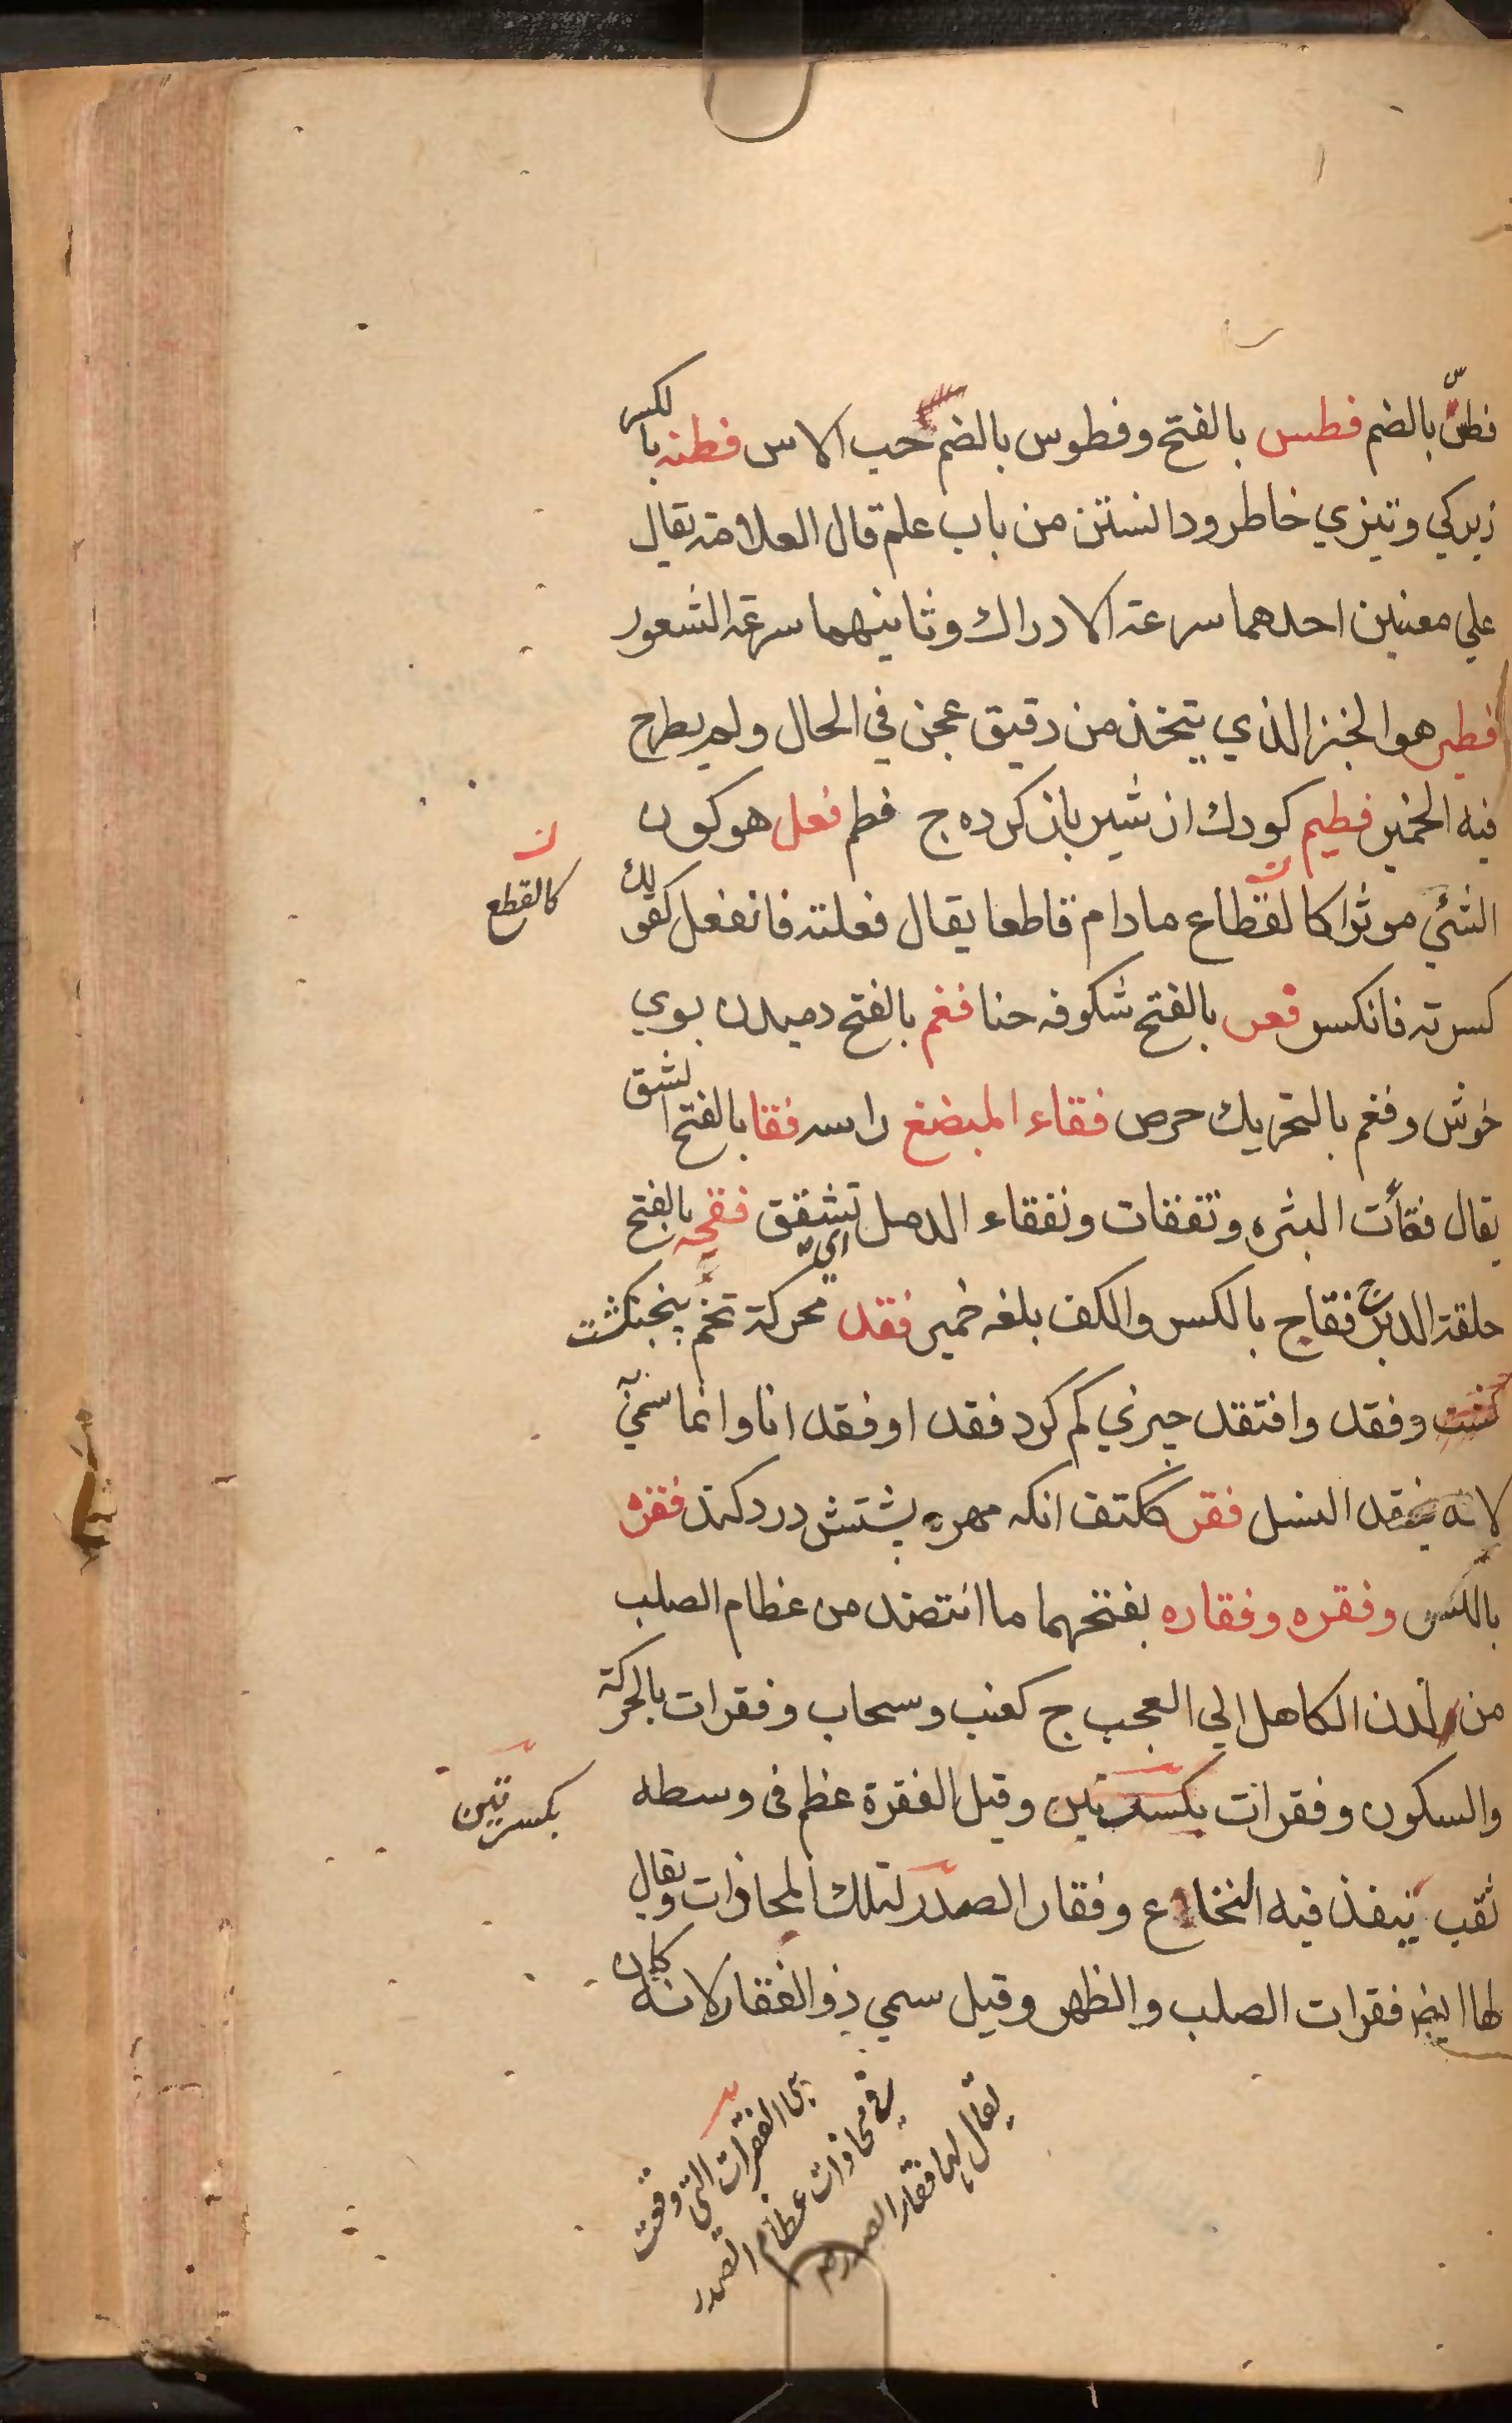 فطسّ بالضم فطس بالفتح وفطوس بالضم حب الاس فطنه بالكسر
زيركي وتيزي خاطر ودانستن من باب علم قال العلامة يقال
علي معنيين احدهما سرعة الادراك وثانيهما سرعة الشعور
فطير هو الخبز الذي يتخذ من دقيق عجن في الحال ولم يطرح
فيه الخمير فطيم كودك از شير باز كرده ج فطم فعل هو كون
الشئي موثرا كالقطاع ما دام قاطعا يقال فعلته فانفعل كقولك
كالقطع
كسرته فانكسر فعر بالفتح شكوفه حنا فغم بالفتح دميدن بوي
خوش وفغم بالتحريك حرص فقاء المبضغ راسه فقا بالفتح الشق
يقال فقأت البثره وتفقات وتفقاء الدمل اي تشقق فقحه بالفتح
حلقة الدبر ج فقاح بالكسر والكف بلغه خمير فقد محركة تخم پنجنكشت
وفقد وافتقد چيزي كم كرد فقد او فقد انا وانما سمي
لانه يفقد النسل فقر ككتف انكه مهره پشتش درد كند فقره
بالكسر وفقره وفقاره بفتحهما ما انتضد من عظام الصلب
من لدن الكاهل الي العجب ج كعنب وسحاب وفقرات بالحركة
والسكون وفقرات بكسرتين وقيل الفقرة عظم فى وسطه
بكسرتين
ثقب ينفذ فيه النخاع وفقار الصدر لتلك المحاذات ويقال
لها ايضا فقرات الصلب والظهر وقيل سمي ذو الفقار لانه كان
الفقرات التي وقعت
في محاذات عظام الصدر
يقال لها فقار الصدر